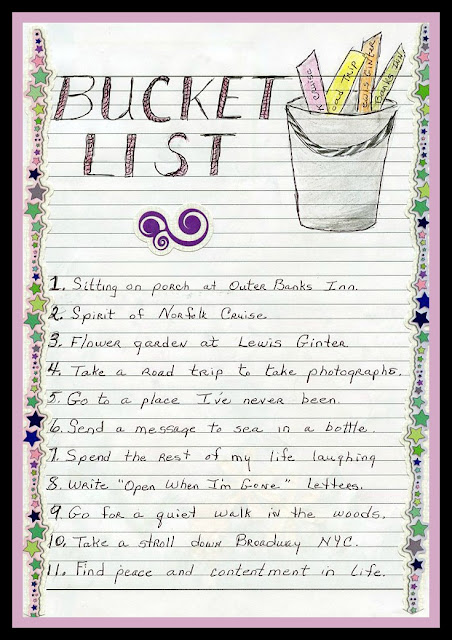 BUCKET
LIST
Cruise
oad Trip
ewis Ginter
Banks Inn
1. Sitting on porch at Outer Banks Inn.
2. Spirit of Norfolk Cruise.
3. Flower garden at Lewis Ginter
4. Take a road trip to take photographs.
5. Go to a place I've never been.
6. Send a message to sea in a bottle.
7. Spend the rest of my life laughing
8. Write "Open When I'm Gone" Letters.
9. Go for a quiet walk in the woods.
10. Take a stroll down Broadway NYC.
11. Find peace and contentment in life.